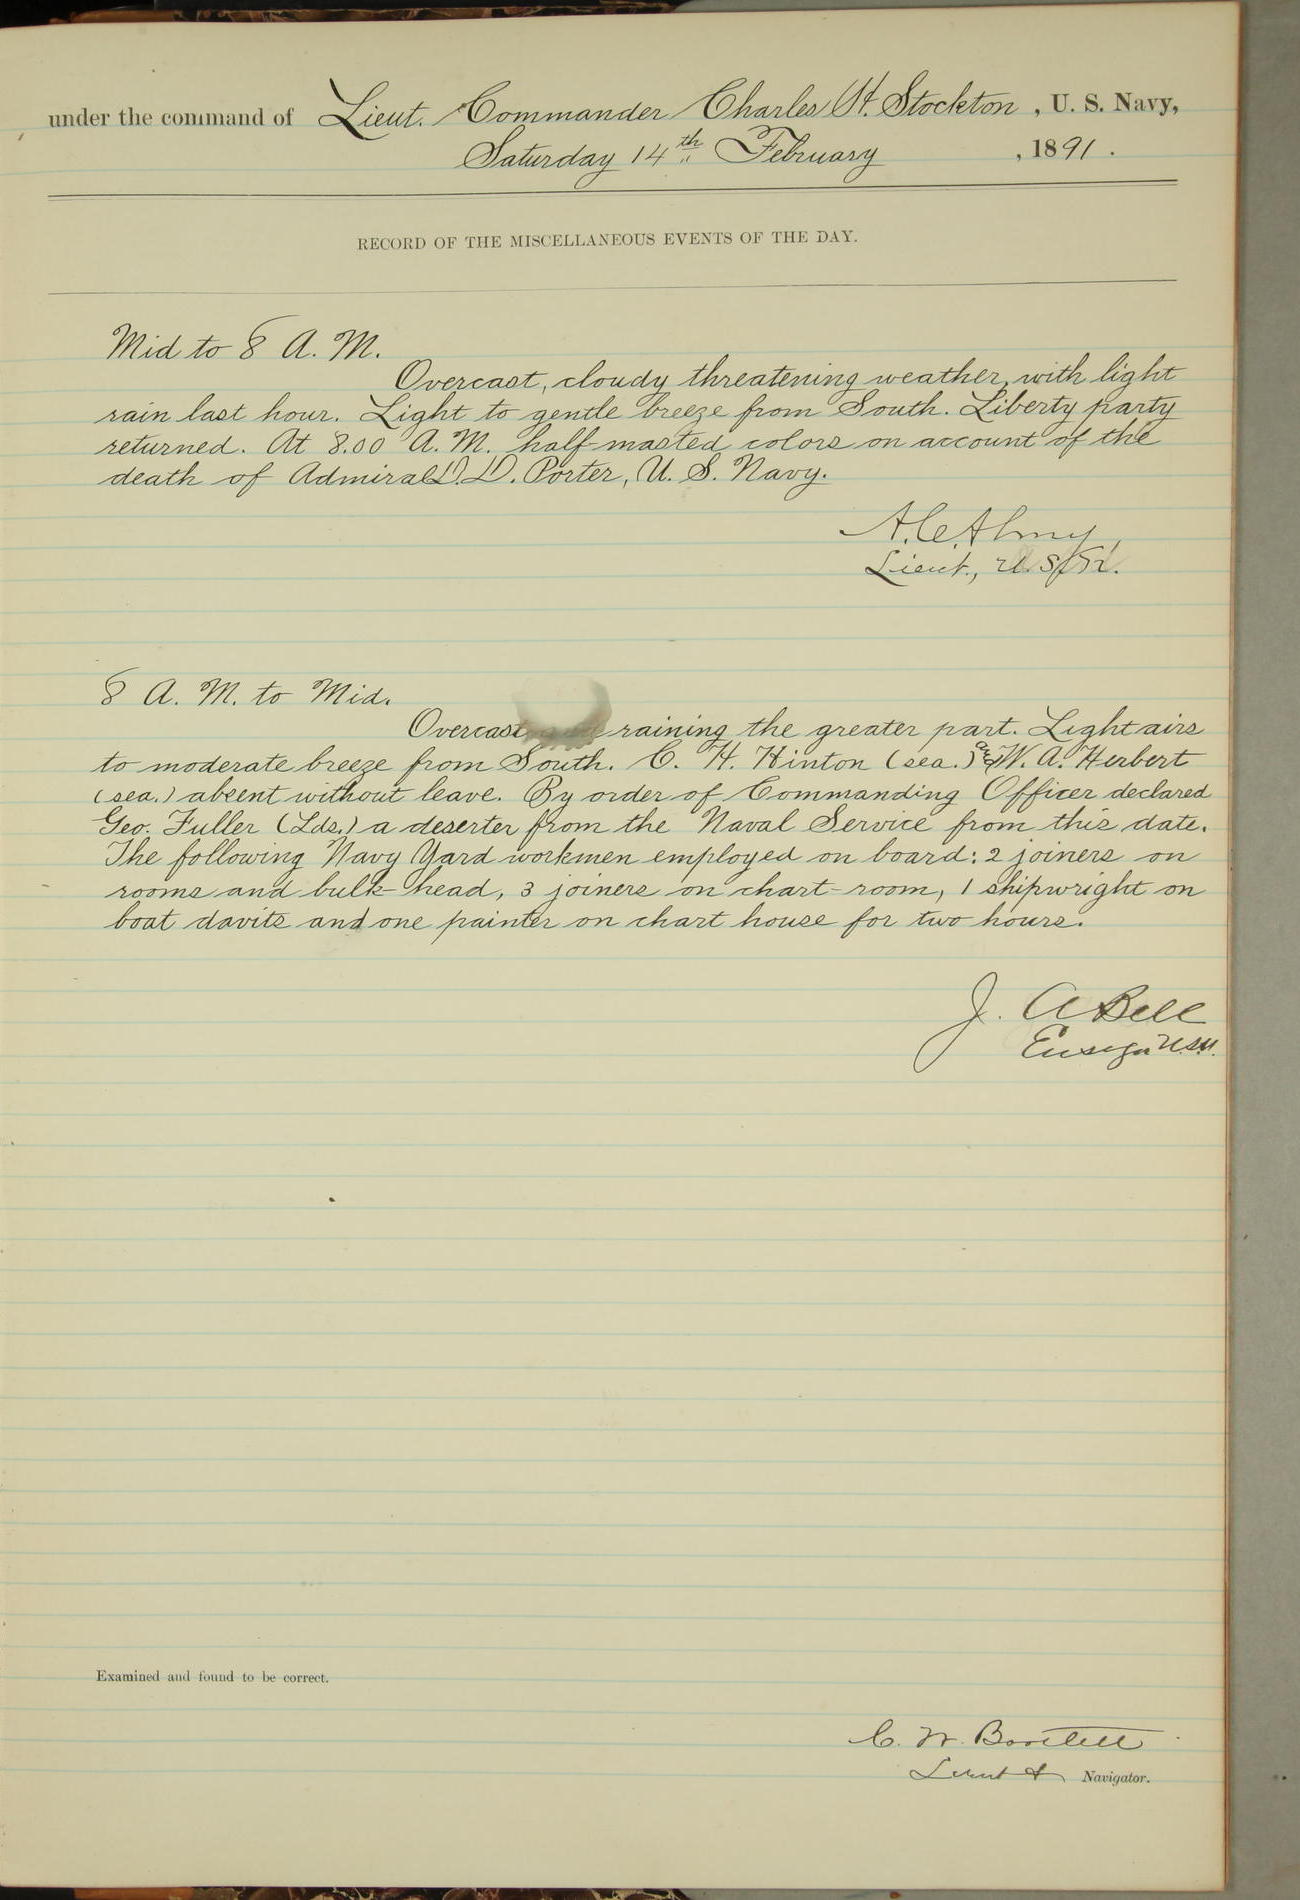 under the command of Lieut. Commander Charles H. Stockton, U. S. Navy,
Saturday 14th February, 1891.
RECORD OF THE MISCELLANEOUS EVENTS OF THE DAY.
Mid to 8 A. M.
Overcast, cloudy threatening weather, with light
rain last hour. Light to gentle breeze from South. Liberty party
returned. At 8.00 A. M. half-masted colors on account of the
death of Admiral D. D. Porter, U. S. Navy.
A. C. Almy,
Lieut., U.S.N.
8 A. M. to Mid.
Overcast and raining the greater part. Light airs
to moderate breeze from South. C. H. Hinton (sea.) and W. A. Herbert
(sea.) absent without leave. By order of Commanding Officer declared
Geo. Fuller (Lds.) a deserter from the Naval Service from this date.
The following Navy Yard workmen employed on board: 2 joiners on
rooms and bulk-head, 3 joiners on chart-room, 1 shipwright on
boat davits and one painter on chart house for two hours.
J. A Bell
Ensign U.S.N.
Examined and found to be correct.
C. W. Bartlett
Lieut & Navigator.